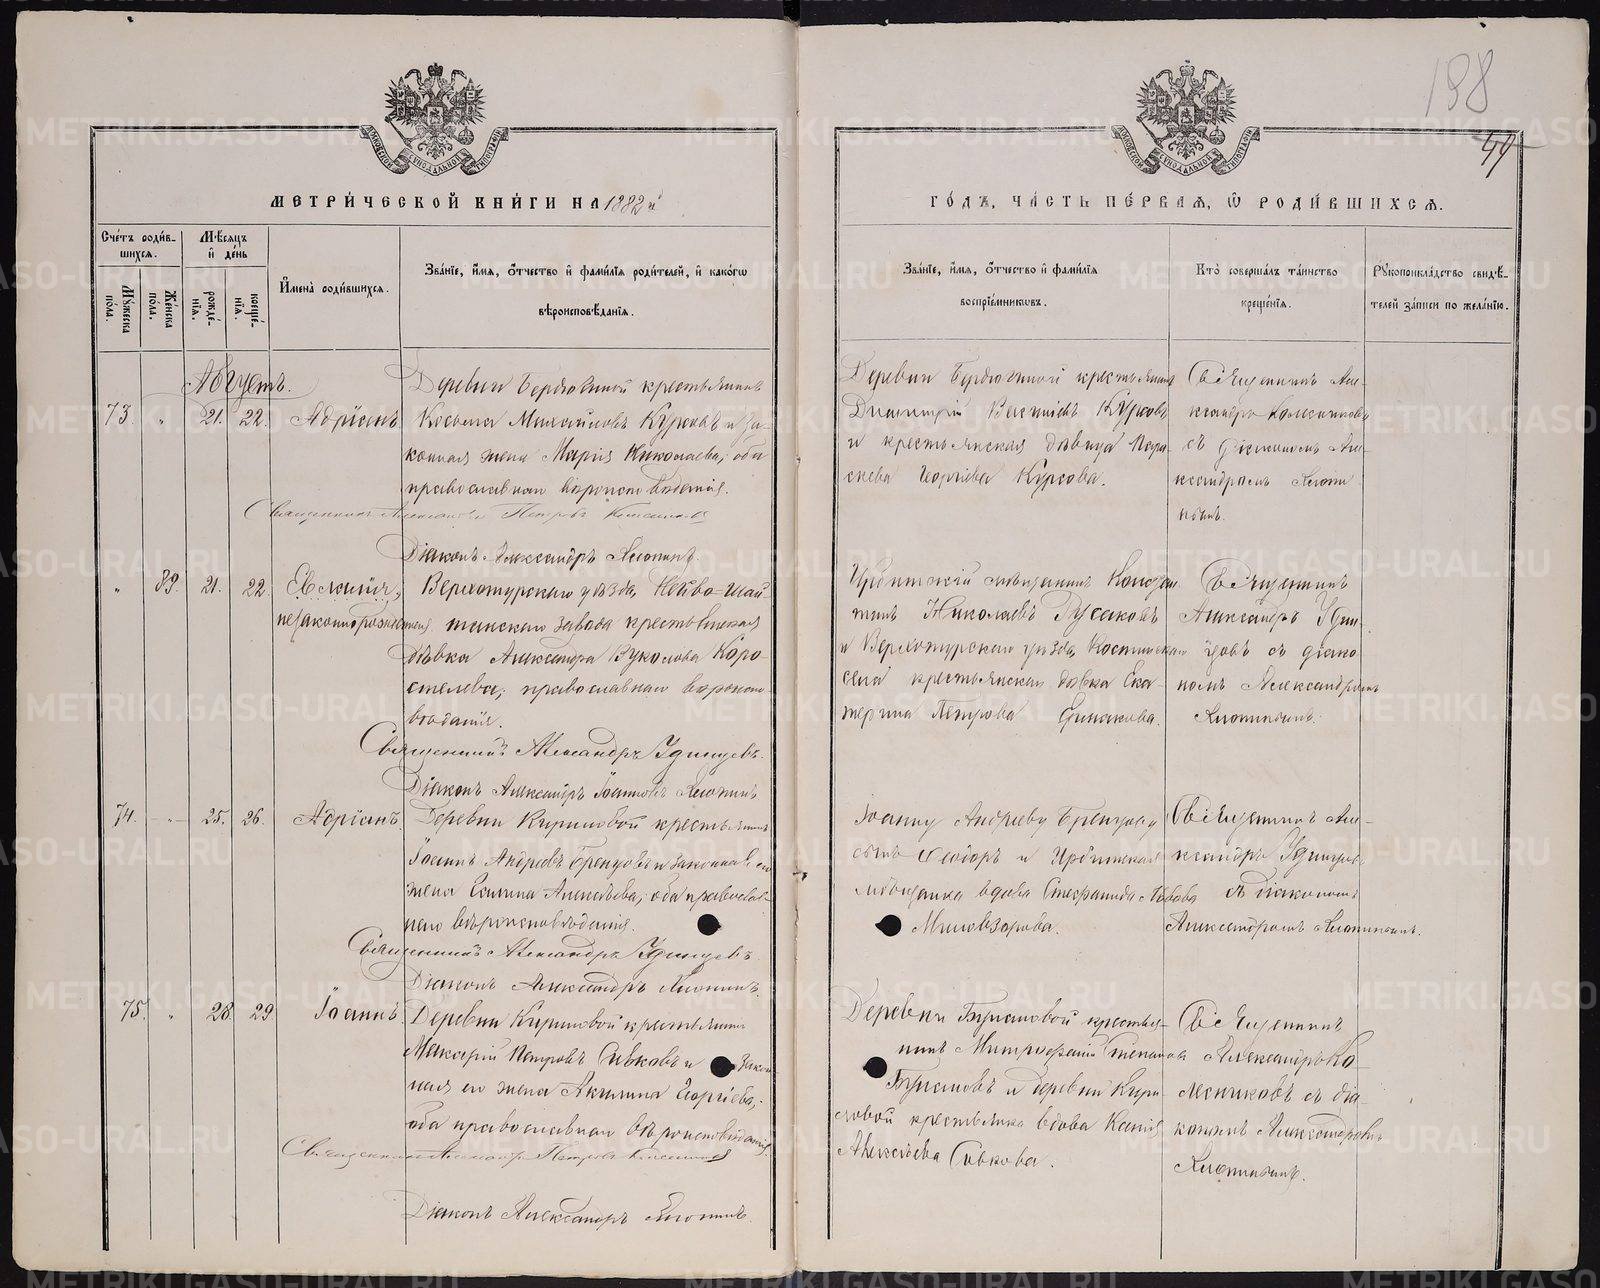 МЕТРИ́ЧЕСКОЙ КНИ́ГИ НА 1882 й
Сче́тъ роди́в-
шихся.
Мѣ́сяцъ
и҆ де́нь
Мꙋ́жеска
по́ла.
Же́нска
по́ла.
рожде́-
нїѧ.
креще́-
нїѧ.
И҆мена̀ роди́вшихся.
Зва́нїе, и҆́мѧ, ѻ҆́тчество и҆ фами́лїѧ роди́телей, и҆ како́гѡ
вѣроисповѣ́данїѧ.
Августъ.
73. " 21. 22. Адріанъ
Деревни Бердюгиной крестьянинъ
Косьма Михайловъ Курсовъ и за-
конная жена Марія Николаева, оба
православнаго вѣроисповѣданія.
Священникъ Александръ Петровъ Колесниковъ
Діаконъ Александръ
" 89. 21. 22. Евгенія,
незаконнорожденная
Верхотурскаго уѣзда, Нейво-Шай-
танскаго завода крестьянская
дѣвка Александра Коро-
стелева, православнаго вѣроиспо-
вѣданія.
Священникъ Александръ Удинцевъ.
Діаконъ Александръ Іоанновъ
74. " 25. 26. Адріанъ
Деревни Кириловой крестьянинъ
Іоаннъ Андреевъ и законная его
жена Алексѣева, оба православ-
наго вѣроисповѣданія.
Священникъ Александръ Удинцевъ
Діаконъ Александръ
75. " 28. 29. Іоаннъ
Деревни Кириловой крестьянинъ
Макарій Петровъ Сивковъ и закон-
ная его жена Акилина Георгіева,
оба православнаго вѣроисповѣданія
Священникъ Александръ Петровъ Колесниковъ
Діаконъ Александръ
198
49
ГО́ДЪ, ЧА́СТЬ ПЕ́РВАЯ, Ѡ҆ РОДИ́ВШИХСЯ.
Зва́нїе, и҆́мѧ, ѻ҆́тчество и҆ фами́лїѧ
воспрїе́мникѡвъ.
Кто̀ соверша́лъ та́инство
креще́нїѧ.
Рꙋкоприкла́дство свидѣ́-
телей за́писи по жела́нїю.
Деревни Бердюгиной крестьянинъ
Димитрій Курсовъ
и крестьянская дѣвица Пара-
скева Георгіева Курсова.
Священникъ Але-
ксандръ Колесниковъ
съ діакономъ Але-
ксандромъ
Ирбитскій мѣщанинъ Констан-
тинъ Николаевъ Русаковъ
и Верхотурскаго уѣзда,
села крестьянская дѣвка Ека-
терина Петрова
Священникъ
Александръ Удин-
цовъ съ діако-
номъ Александромъ
Іоанну Андрееву
сынъ Ѳеодоръ и Ирбитская
мѣщанка вдова Стефанида
Миловзорова.
Священникъ Але-
ксандръ Удинцовъ
съ діакономъ
Александромъ
Деревни Бунковой крестья-
нинъ Митрофанъ Степановъ
и деревни Кири-
ловой крестьянка вдова Ксенія
Алексѣева Сивкова.
Священникъ
Александръ Ко-
лесниковъ съ діа-
кономъ Александромъ